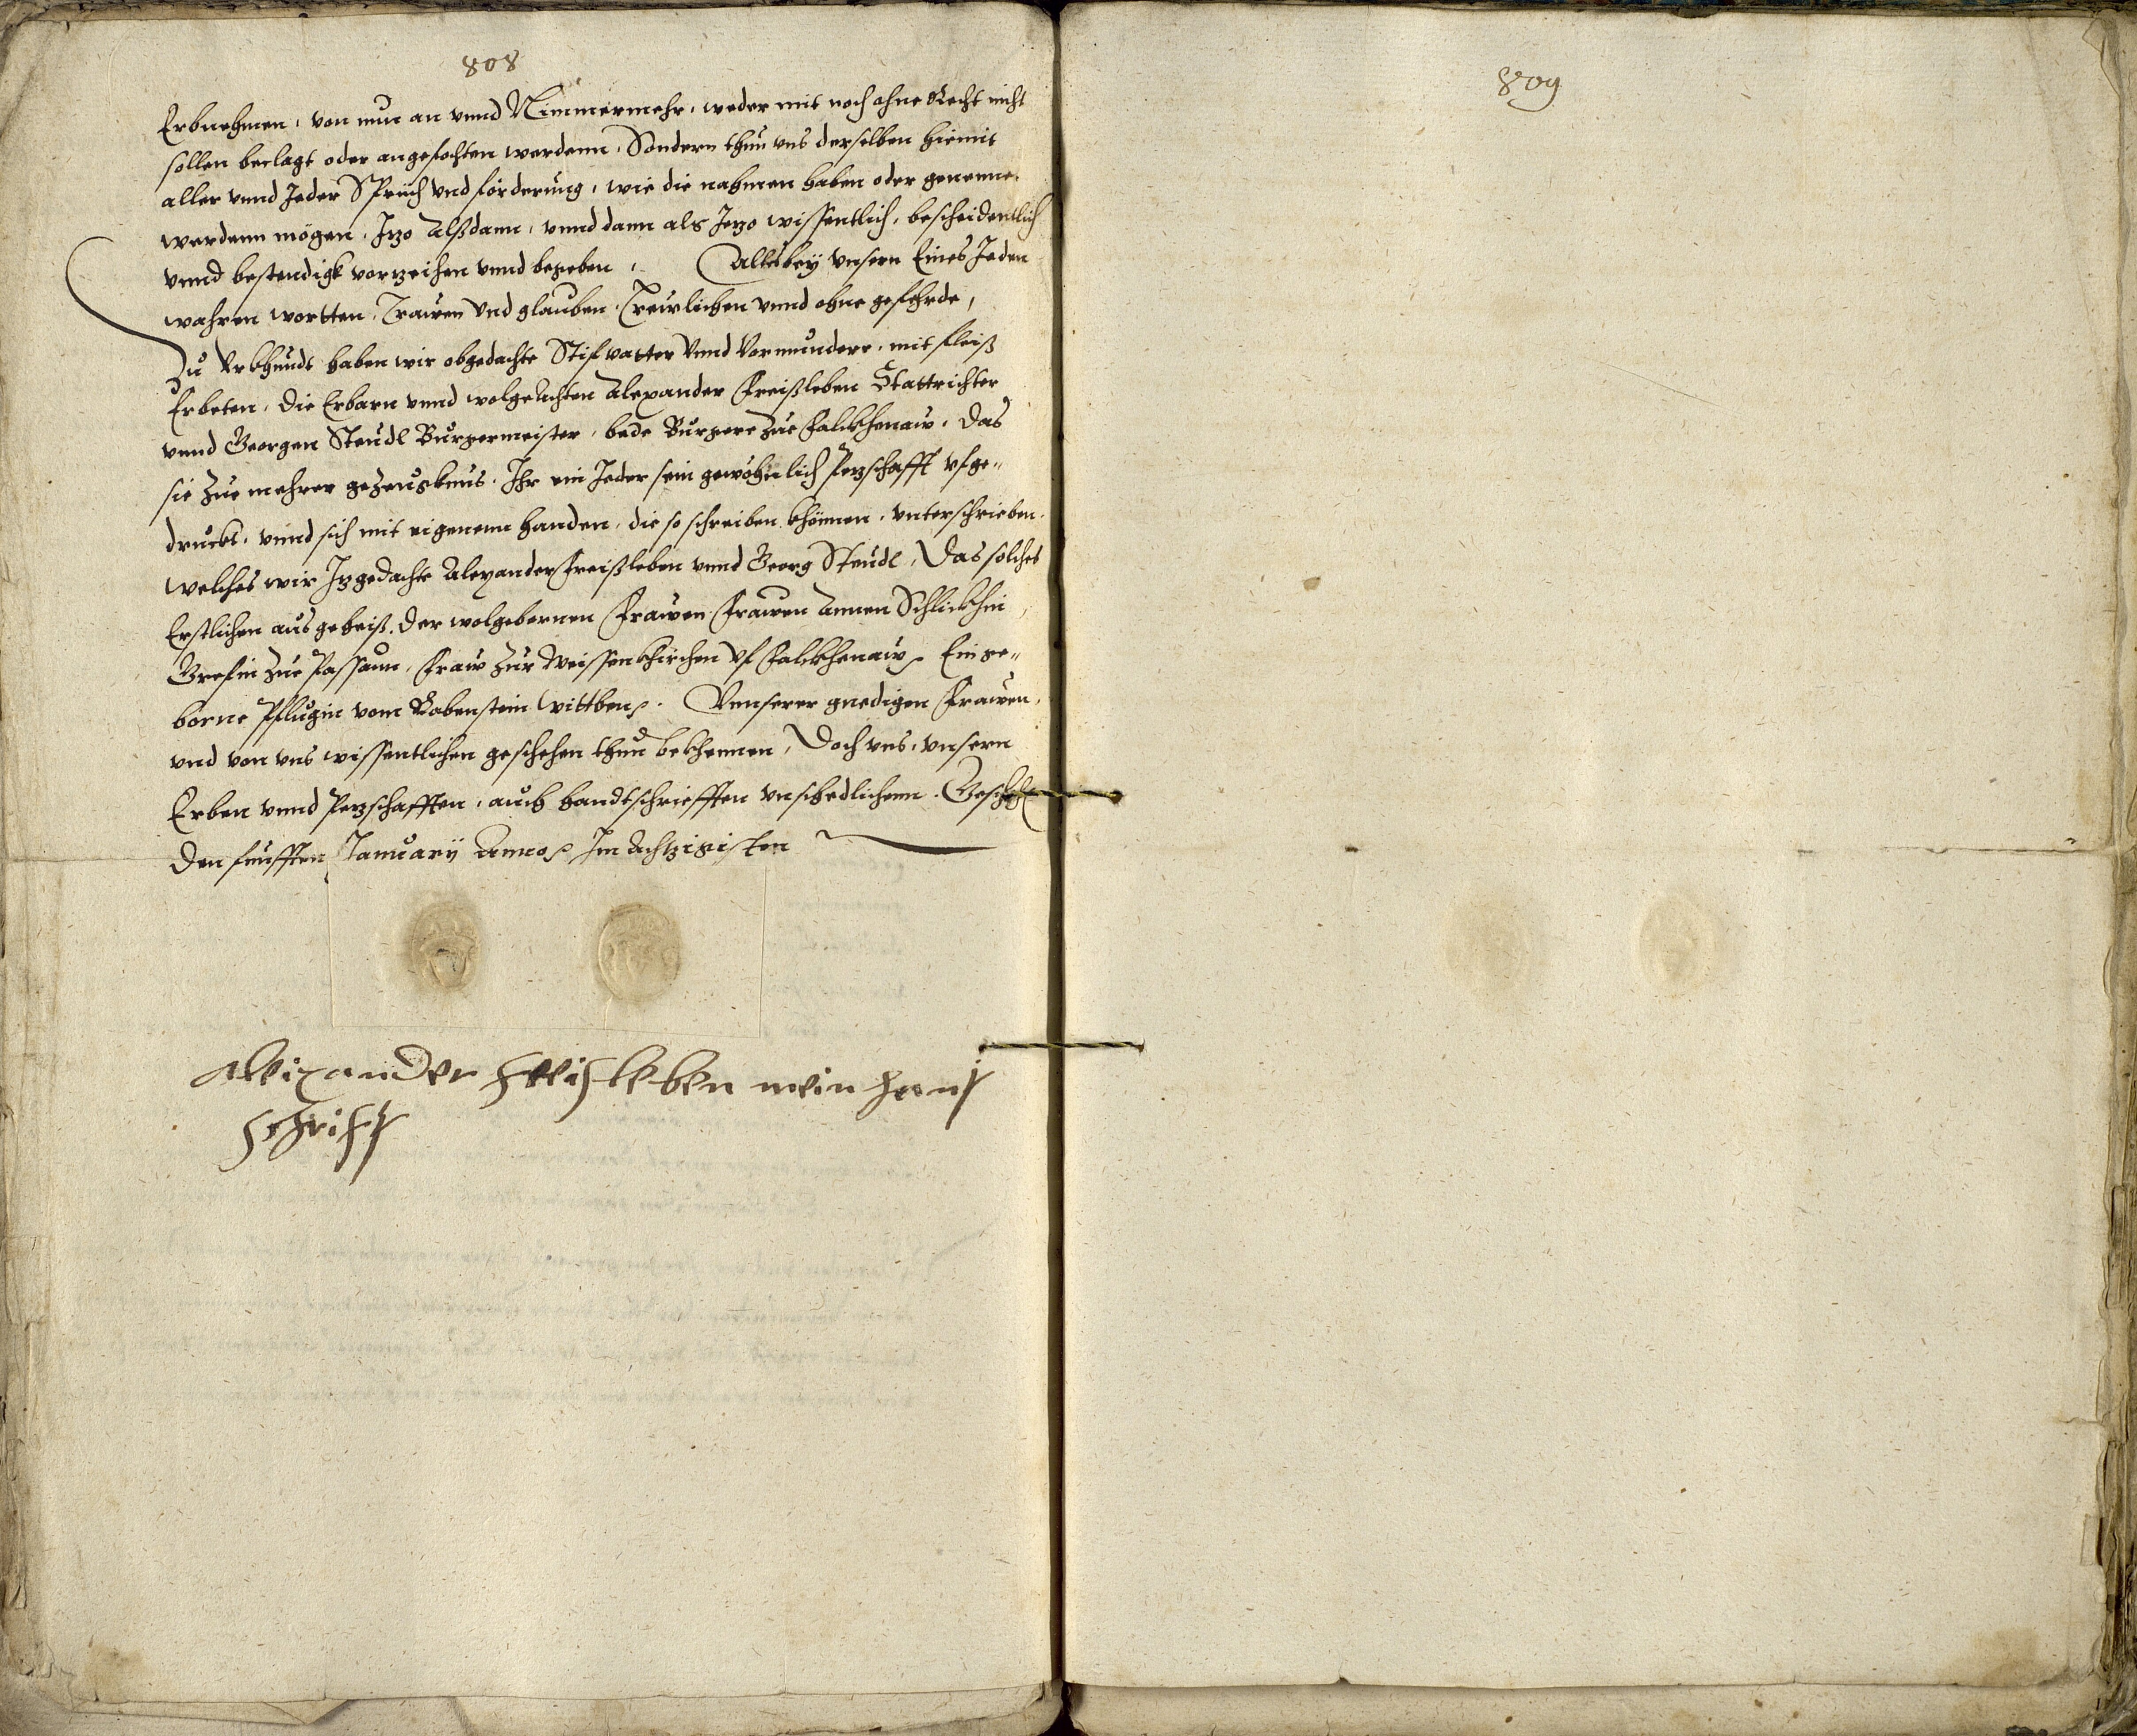 808
Erbnehmen, von nun an vnnd Nimmermehr, weder mit noch ohne Recht nicht
sollen beclagt oder angefochten werdenn, Sondern thun vns derselben hiemit
aller vnnd Jeder Spruch vnd forderung, wie die nahmen haben oder genenne
werdenn mögen, Jzo Alßdann, vnnd dann als Jezo wissentlich, bescheidentlich
vnnd bestendigk vorzeihen vnnd begeben, Alles bey vnsern Eines Jeden
wahren wortten, Trawen vnd glauben, Trewlichen vnnd ohne gefehrde,
Zu Vrkhundt haben wir obgedachte Stifvatter vnnd Vormundere, mit fleiß
Erbeten, die Erbarn vnnd wolgeachten Alexander Freißleben Stattrichter
vnnd Georgen Steudl Burgermeister, bede Burgere zue Falckhenaw, Das
sie zue mehrer gezeugknus, Ihr ein Jeder sein gewöhnlich Pezschafft vfge-
druckt, vnnd sich mit eigenenn handen, die so schreiben khönnen, vnterschrieben.
Welches wir Jzgedachte Alexander Freißleben vnnd Georg Steudl, Das solches
Erstlichen aus geheiß, der wolgebornen Frawen Frawen Annen Schlickhin
Grefin zue Passaun, Fraw zur Weissenkhirchen vf Falckhenaw, Ein ge-
borne Pflugin vom Rabenstein wittben, Vnnserer gnedigen Frawen,
vnd von vns wissentlichen geschehen thun bekhennen, Doch vns, vnsern
Erben vnnd Pezschafften, auch handtschriefften vnschedlichenn. Geschehen
den funfften January Annos Im Achtzigisten
Alexander Freisleben mein hant
schrift
809